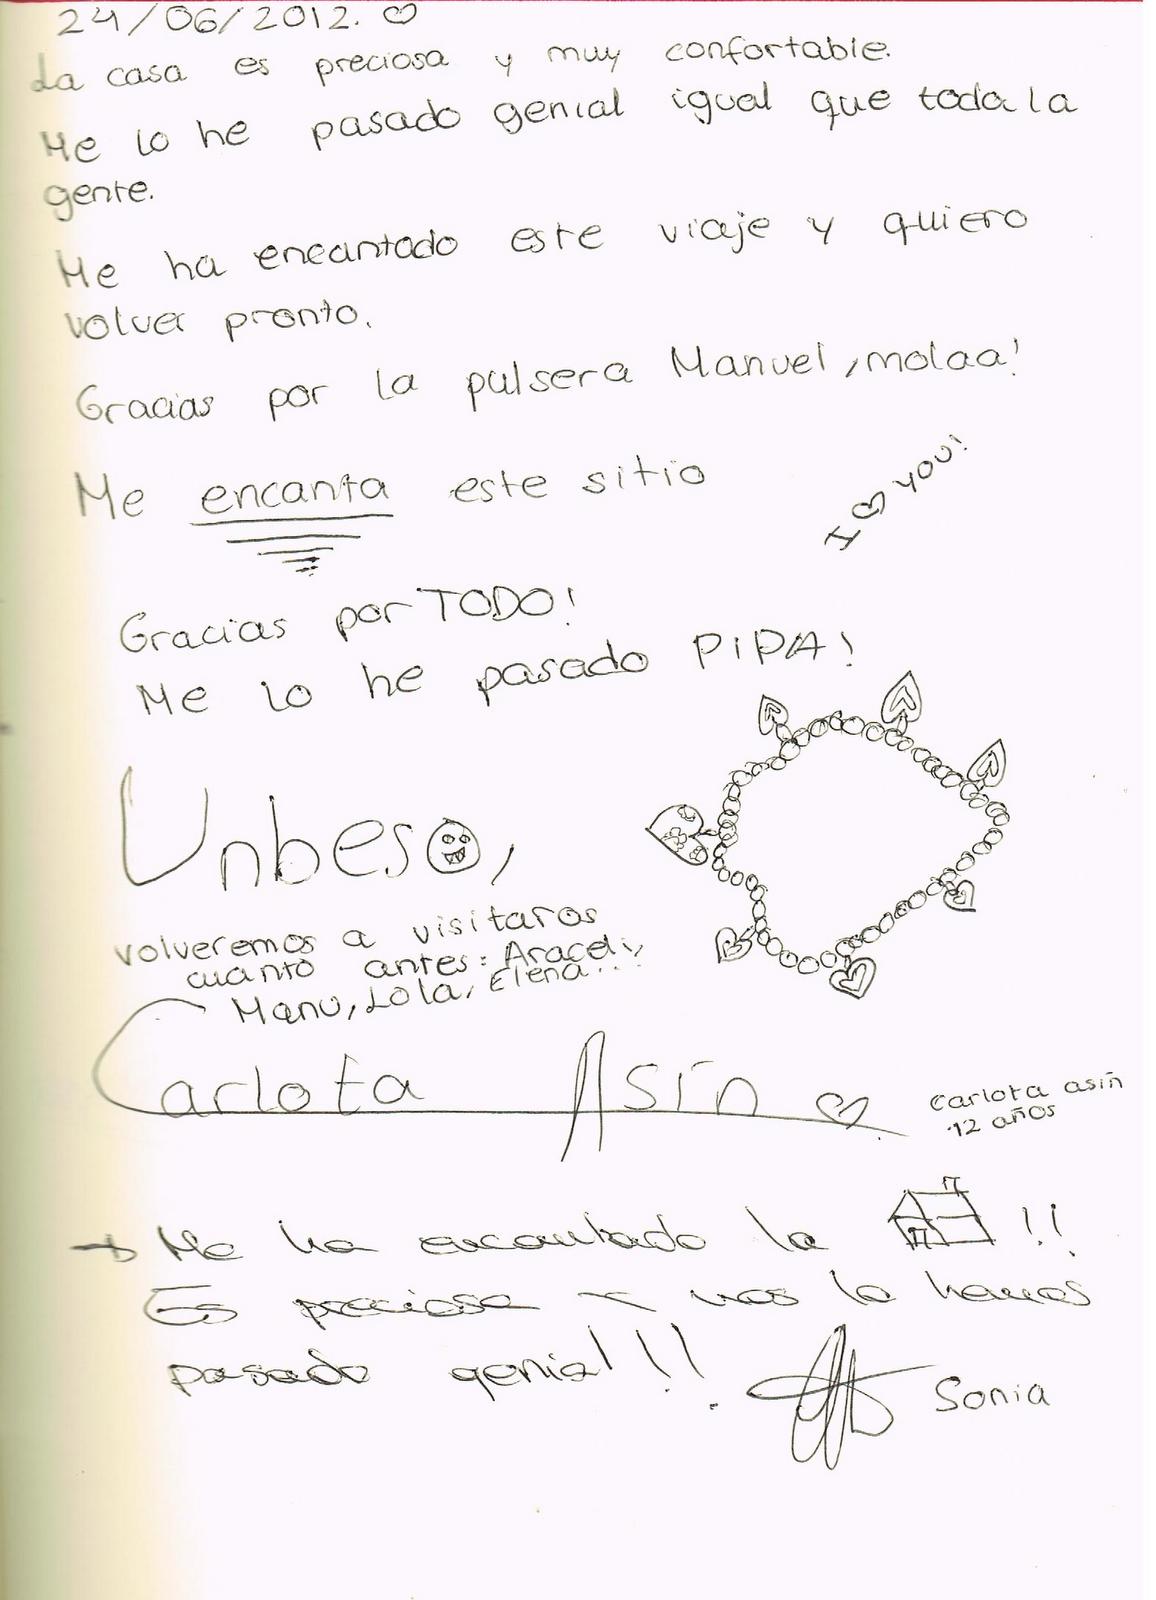 24/06/2012. ♡
La casa es preciosa y muy confortable.
Me lo he pasado genial igual que toda la
gente.
Me ha encantado este viaje y quiero
volver pronto.
Gracias por la pulsera Manuel, molaa!
Me encanta este sitio
I ♡ YOU!
Gracias por TODO!
Me lo he pasado PiPA!
Un beso,
volveremos a visitaros
cuanto antes: Araceli,
Manu, Lola, Elena...
Carlota Asín ♡
Carlota asín
12 años
→ Me ha encantado la !!
Es preciosa y nos lo hemos
pasado genial!!!
Sonia